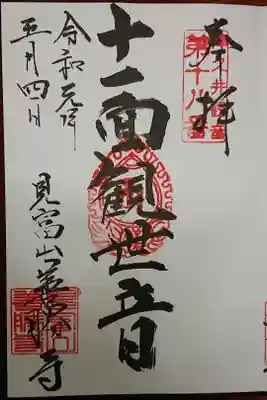 奉拝
第十八番
十一面観世音
令和元年
五月四日
見富山
寺